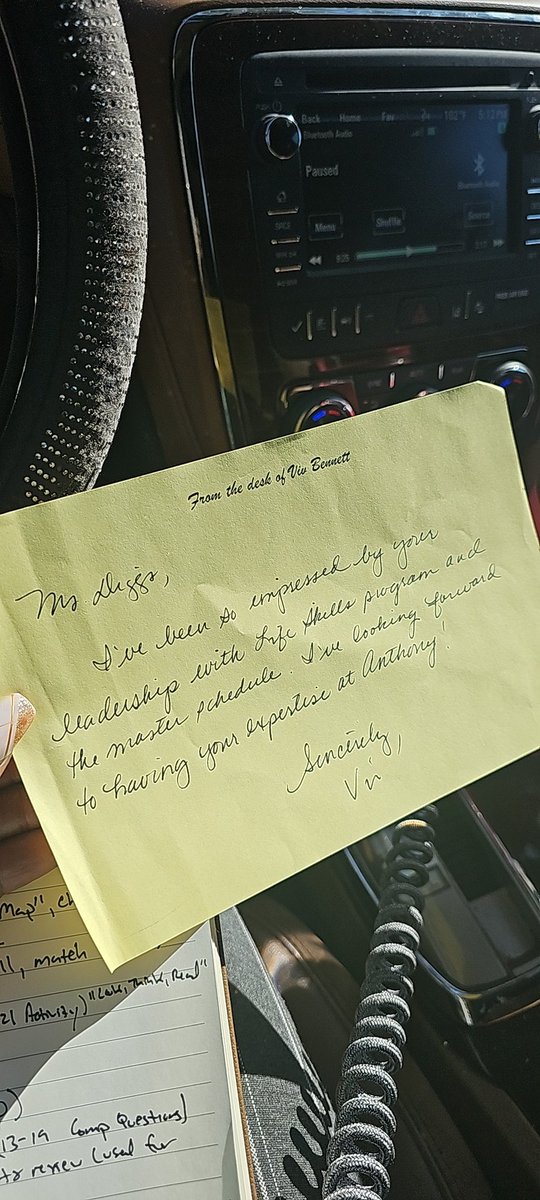 Back Home Fav 102°F 5:12 PM
Bluetooth Audio
Paused
Bluetooth Audio
Menu Shuffle Source
9:25
From the desk of Viv Bennett
Ms Diggs,
I've been so impressed by your
leadership with Life Skills program and
the master schedule. I've looking forward
to having your expertise at Anthony!
Sincerely,
Viv
Map",
match
21 Activity) "Look, Think, Read"
13-19 Comp Questions)
review (used for